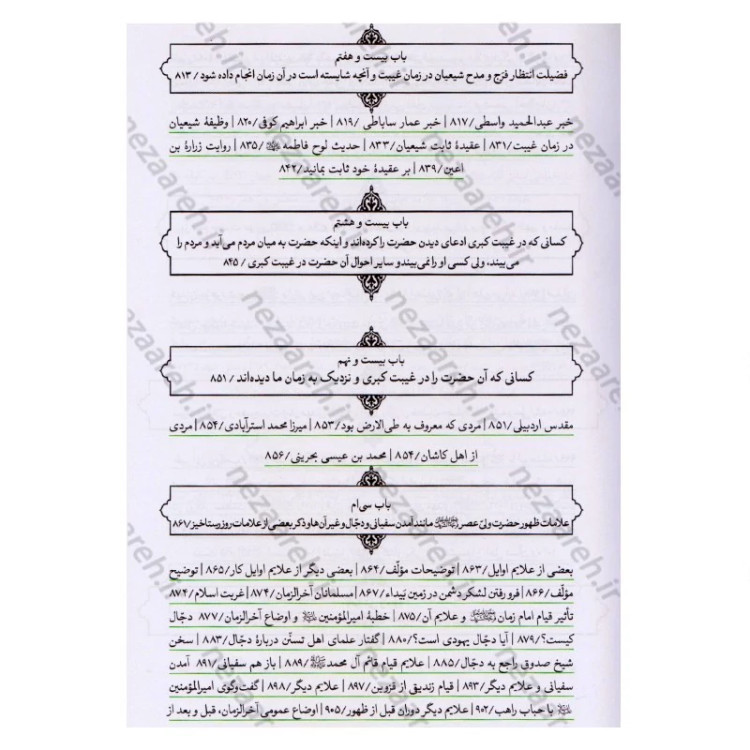 باب بیست و هفتم
فضیلت انتظار فرَج و مدح شیعیان در زمان غیبت و آنچه شایسته است در آن زمان انجام داده شود / ۸۱۳
خبر عبدالحمید واسطی/ ۸۱۷ | خبر عمار ساباطی / ۸۱۹ | خبر ابراهیم کوفی/ ۸۲۰ | وظیفهٔ شیعیان
در زمان غیبت/ ۸۳۱ | عقیدهٔ ثابت شیعیان/ ۸۳۳ | حدیث لوح فاطمه / ۸۳۵ | روایت زرارة بن
اعین/ ۸۳۹ | بر عقیدهٔ خود ثابت بمانید/ ۸۴۲
باب بیست و هشتم
کسانی که در غیبت کبری ادعای دیدن حضرت را کرده‌اند و اینکه حضرت به میان مردم می‌آید و مردم را
می‌بیند، ولی کسی او را نمی‌بیند و سایر احوال آن حضرت در غیبت کبری / ۸۴۵
باب بیست و نهم
کسانی که آن حضرت را در غیبت کبری و نزدیک به زمان ما دیده‌اند / ۸۵۱
مقدس اردبیلی/ ۸۵۱ | مردی که معروف به طی‌الارض بود/ ۸۵۳ | میرزا محمد استرآبادی/ ۸۵۴ | مردی
از اهل کاشان/ ۸۵۴ | محمد بن عیسی بحرینی/ ۸۵۶
باب سی‌ام
علامات ظهور حضرت ولیّ عصر مانند آمدن سفیانی و دجّال و غیر آن‌ها و ذکر بعضی از علامات روز رستاخیز/ ۸۶۷
بعضی از علایم اوایل/ ۸۶۳ | توضیحات مؤلّف/ ۸۶۴ | بعضی دیگر از علایم اوایل کار/ ۸۶۵ | توضیح
مؤلّف/ ۸۶۶ | فرو رفتن لشکر دشمن در زمین بَیداء/ ۸۶۷ | مسلمانان آخرالزمان/ ۸۷۴ | غربت اسلام/ ۸۷۴
تأثیر قیام امام زمان و علایم آن/ ۸۷۵ | خطبهٔ امیرالمؤمنین و اوضاع آخرالزمان/ ۸۷۷ دجّال
کیست؟/ ۸۷۹ | آیا دجّال یهودی است؟/ ۸۸۰ | گفتار علمای اهل تسنّن دربارهٔ دجّال/ ۸۸۳ | سخن
شیخ صدوق راجع به دجّال/ ۸۸۵ | علایم قیام قائم آل محمد / ۸۸۹ | باز هم سفیانی/ ۸۹۱ آمدن
سفیانی و علایم دیگر/ ۸۹۳ | قیام زندیق از قزوین/ ۸۹۷ | علایم دیگر/ ۸۹۸ | گفت‌وگوی امیرالمؤمنین
با حباب راهب/ ۹۰۲ | علایم دیگر دوران قبل از ظهور/ ۹۰۵ | اوضاع عمومی آخرالزمان، قبل و بعد از
nezaareh.ir